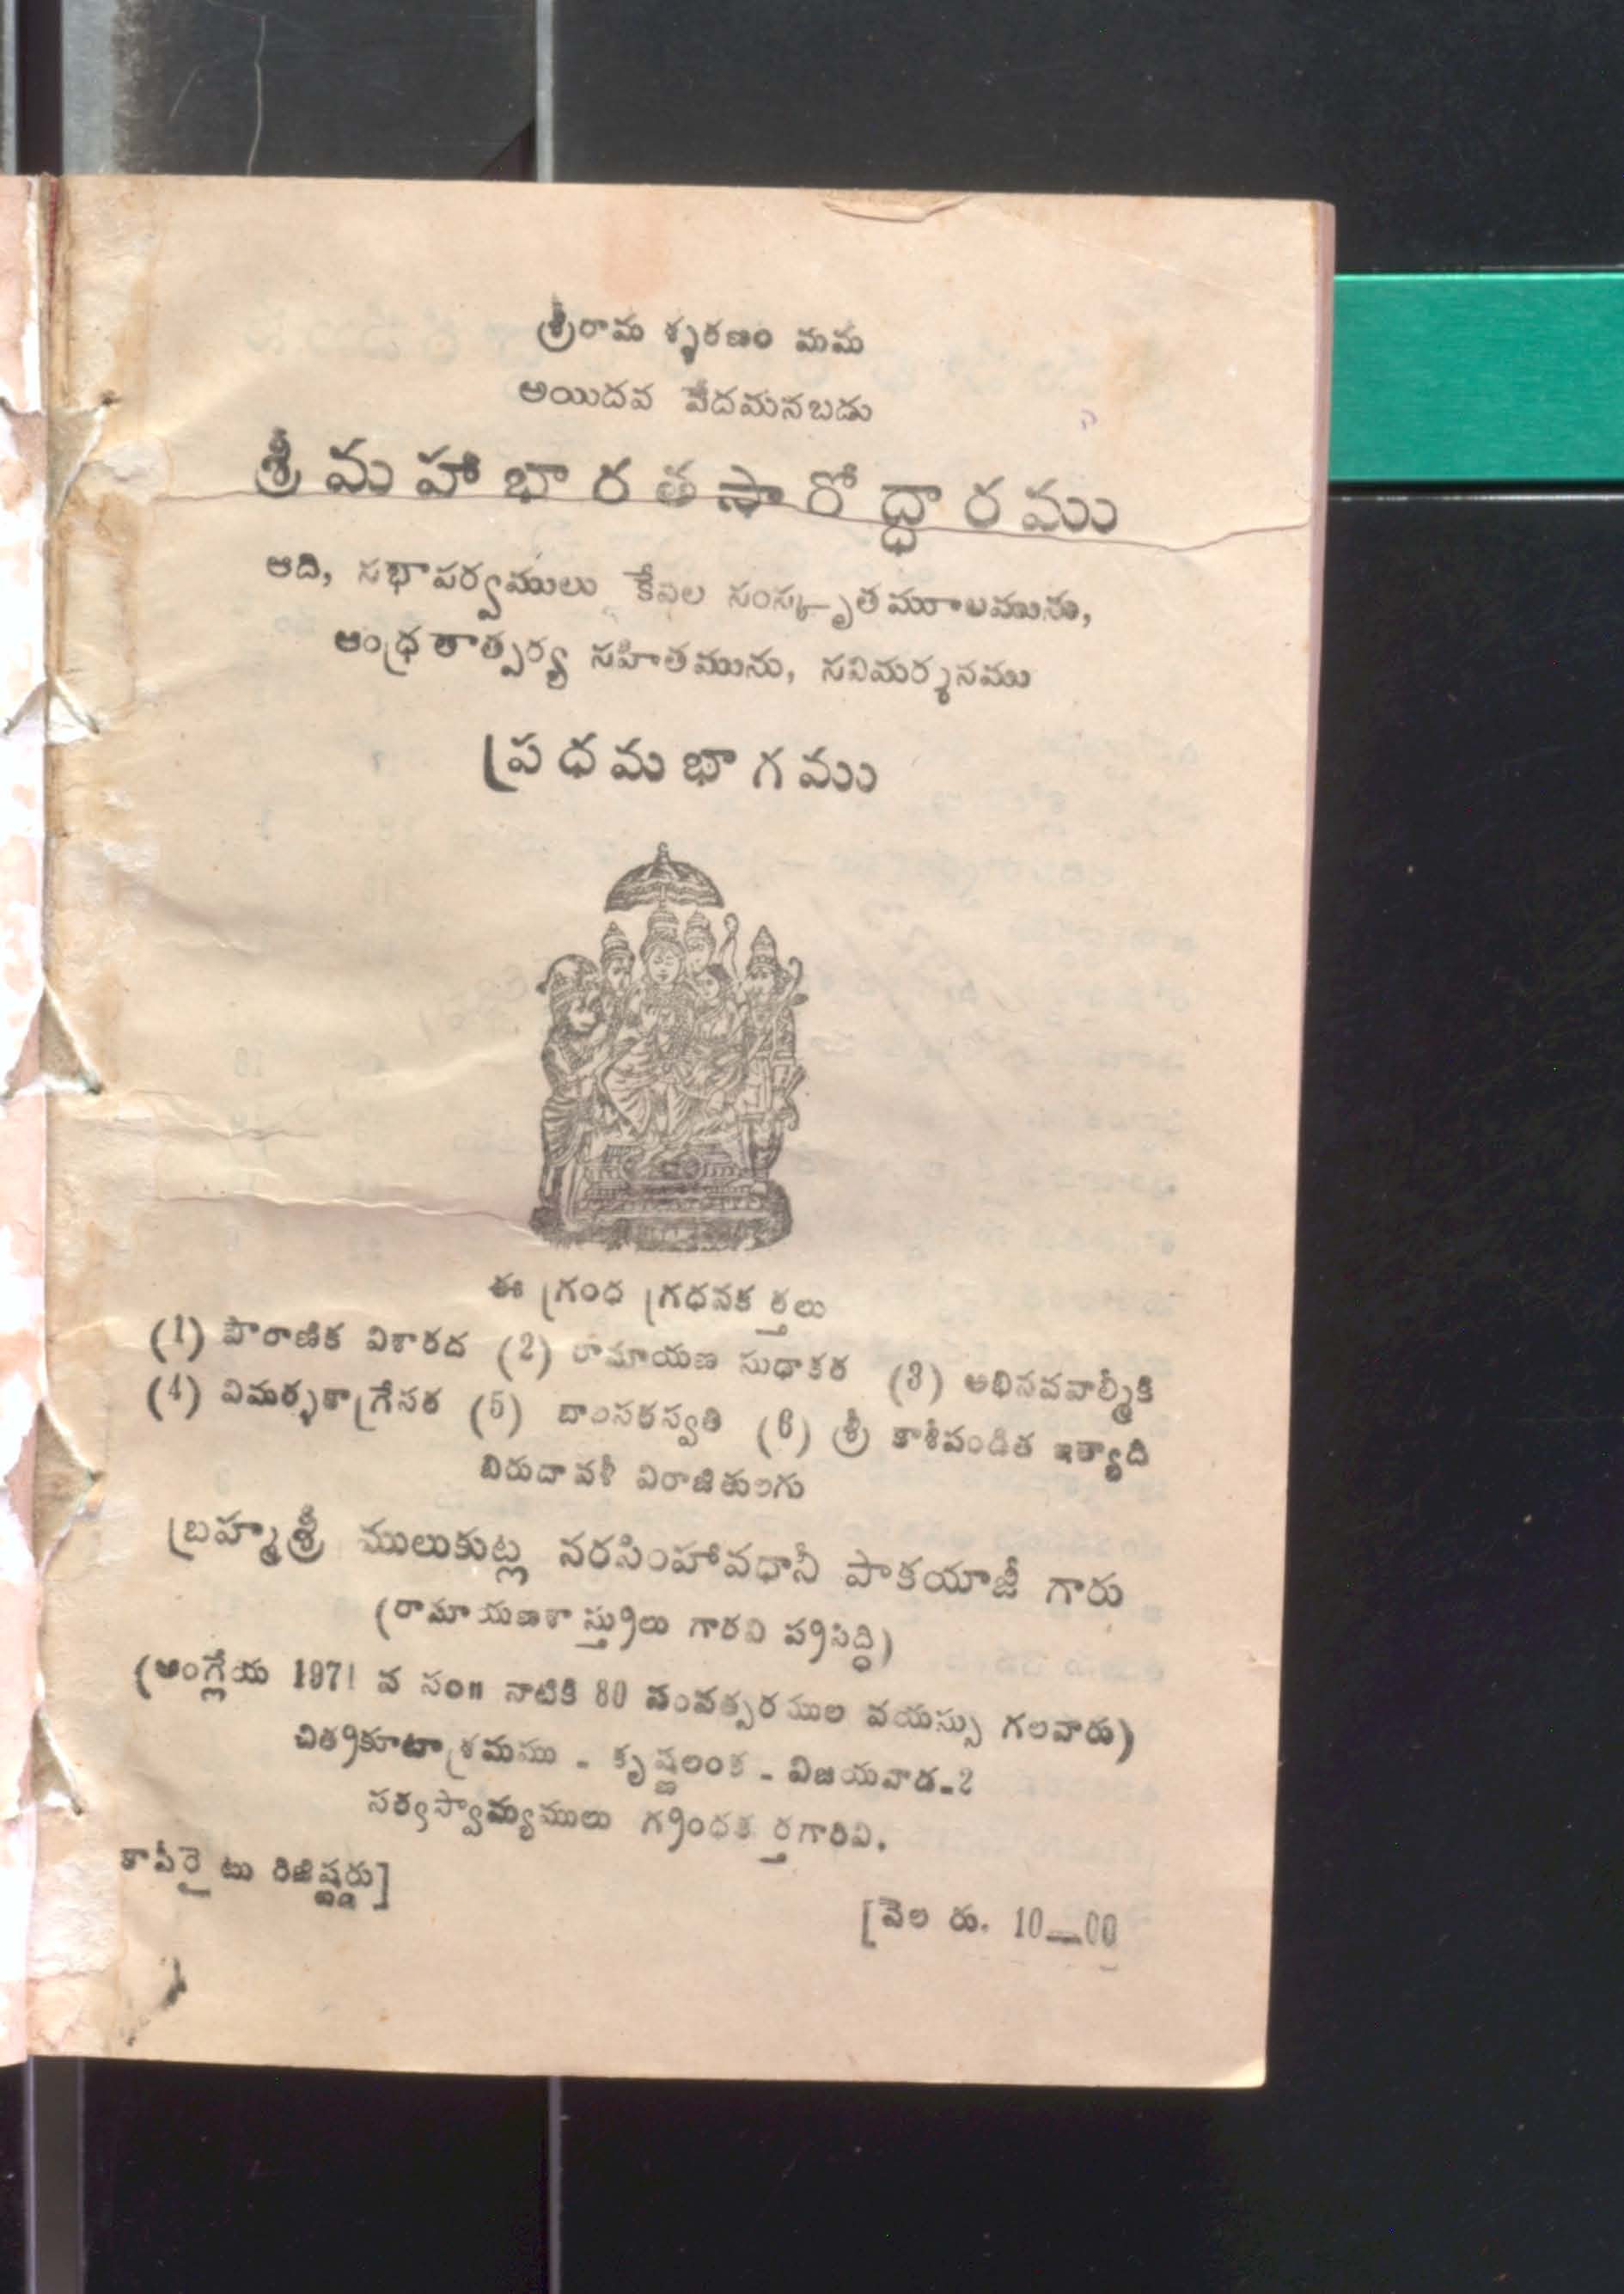 శ్రీరామ శ్శరణం మమ
అయిదవ వేదమనబడు
శ్రీ మ హా భా ర త సా రో ద్ధా ర ము
ఆది, సభాపర్వములు కేవల సంస్కృతమూలమును,
ఆంధ్రతాత్పర్య సహితమును, సవిమర్శనము
ప్ర ధ మ భా గ ము
ఈ గ్రంధ గ్రధనకర్తలు
(1) పౌరాణిక విశారద (2) రామాయణ సుధాకర (3) అభినవవాల్మీకి
(4) విమర్శకాగ్రేసర (5) బాలసరస్వతి (6) శ్రీ కాశీపండిత ఇత్యాది
బిరుదావళీ విరాజితులగు
బ్రహ్మశ్రీ ములుకుట్ల నరసింహావధానీ పాకయాజీ గారు
(రామాయణశాస్త్రులు గారని ప్రసిద్ధి)
(ఆంగ్లేయ 1971 వ సం॥ నాటికి 80 సంవత్సరముల వయస్సు గలవారు)
చిత్రకూటాశ్రమము - కృష్ణలంక - విజయవాడ-2
సర్వస్వామ్యములు గ్రంధకర్తగారివి.
కాపీరైటు రిజిష్టర్డు]
[వెల రు. 10—00